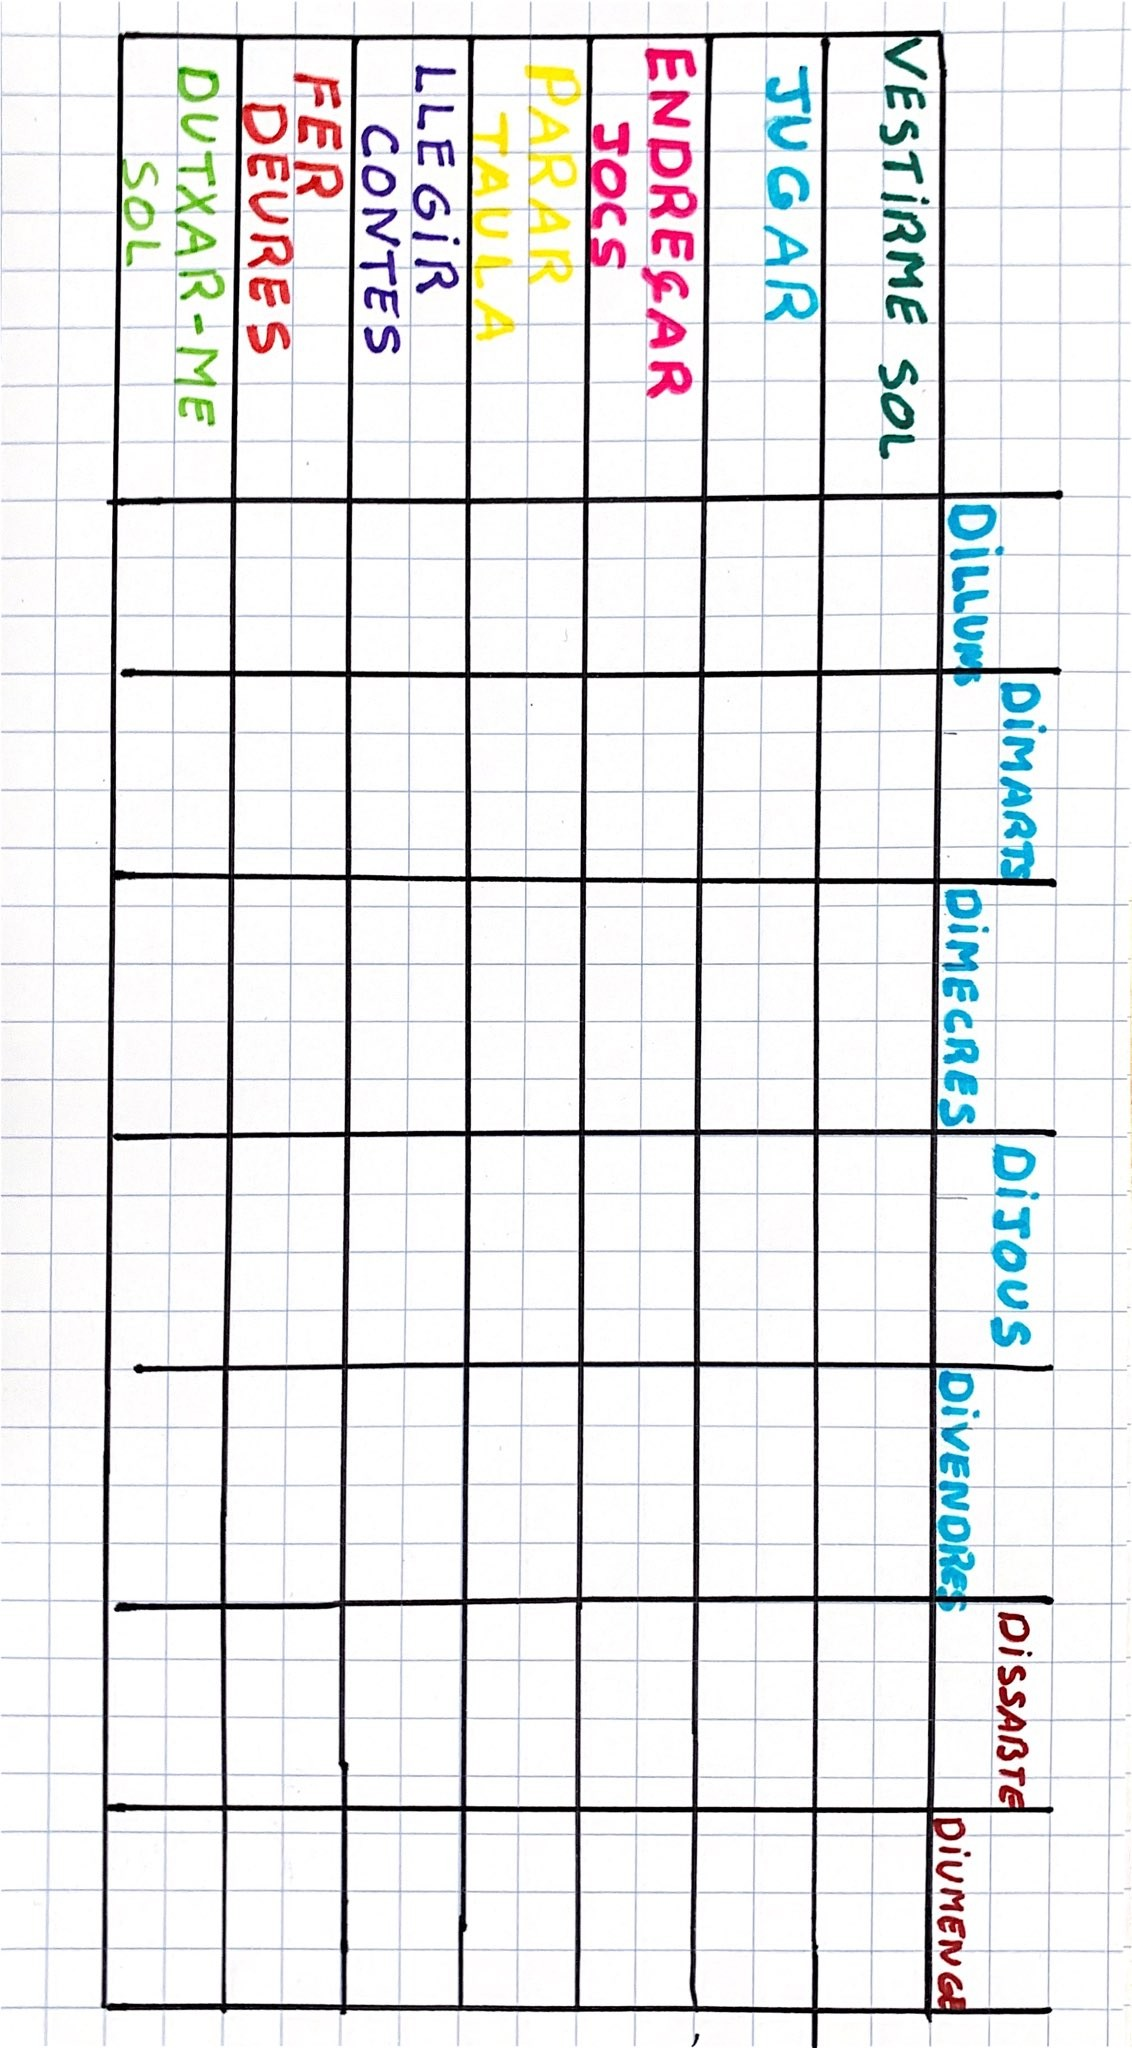 DILLUNS
DIMARTS
DIMECRES
DIJOUS
DIVENDRES
DISSABTE
DIUMENGE
VESTIRME SOL
JUGAR
ENDREÇAR
JOCS
PARAR
TAULA
LLEGIR
CONTES
FER
DEURES
DUTXAR-ME
SOL